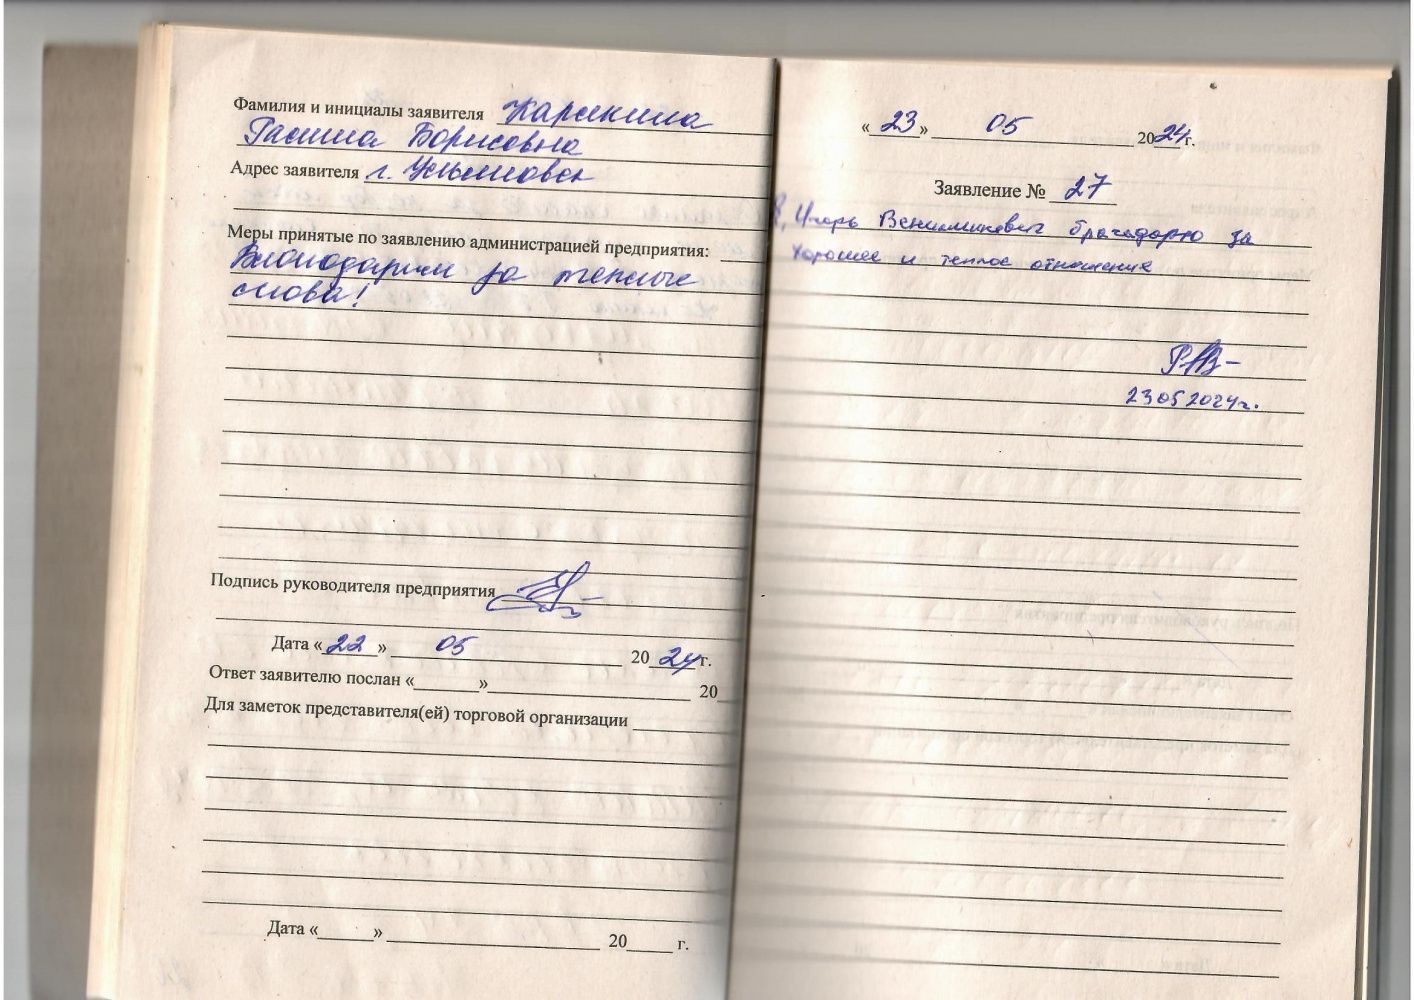 Фамилия и инициалы заявителя Карякина
Галина Борисовна
Адрес заявителя г. Ульяновск
Меры принятые по заявлению администрацией предприятия:
Благодарим за теплые
слова!
Подпись руководителя предприятия
Дата «22» 05 2024г.
Ответ заявителю послан «_______»______________________ 20
Для заметок представителя(ей) торговой организации
Дата «______» ______________________ 20_____ г.
«23» 05 2024г.
Заявление № 27
Я, Игорь Вениаминович благодарю за
хорошее и теплое отношение
23 05 2024г.